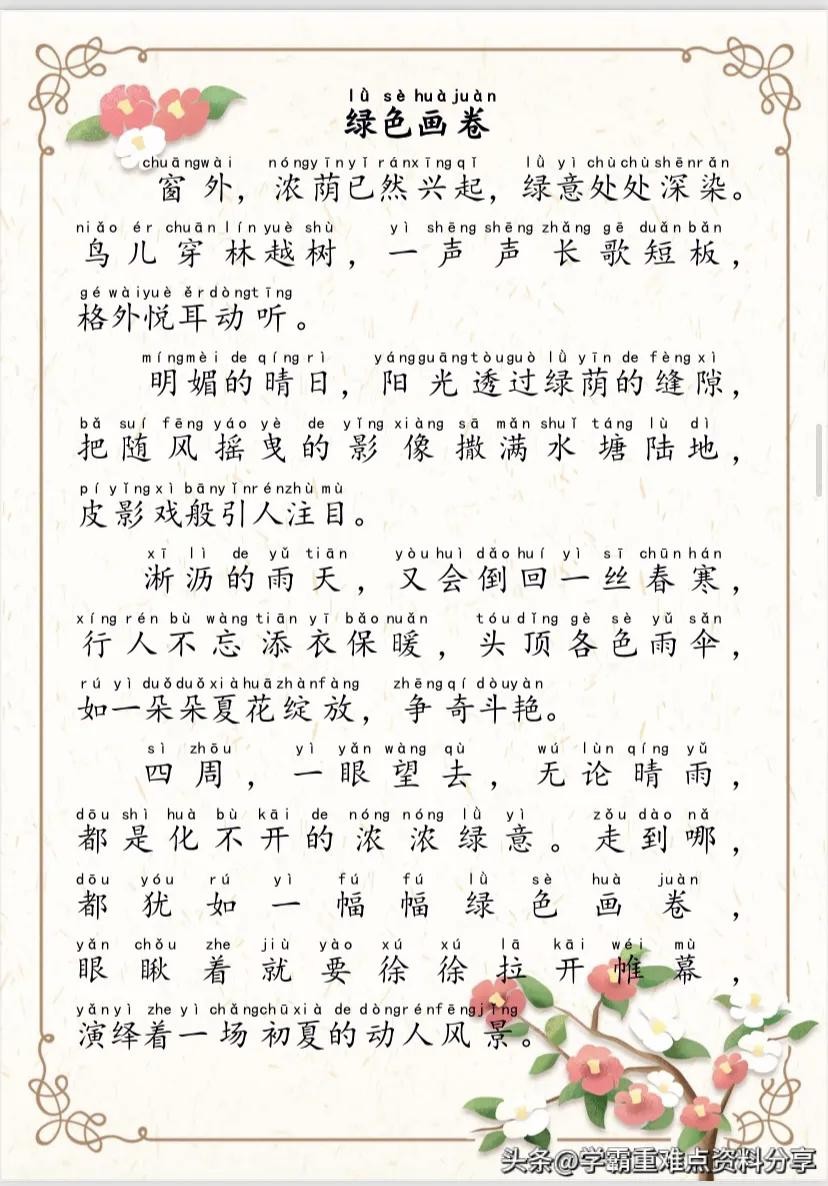 lǜ sè huà juàn
绿色画卷
chuāng wài nóng yīn yǐ rán xīng qǐ lǜ yì chù chù shēn rǎn
窗外，浓荫已然兴起，绿意处处深染。
niǎo ér chuān lín yuè shù yì shēng shēng zhǎng gē duǎn bǎn
鸟儿穿林越树，一声声长歌短板，
gé wài yuè ěr dòng tīng
格外悦耳动听。
míng mèi de qíng rì yáng guāng tòu guò lǜ yīn de fèng xì
明媚的晴日，阳光透过绿荫的缝隙，
bǎ suí fēng yáo yè de yǐng xiàng sā mǎn shuǐ táng lù dì
把随风摇曳的影像撒满水塘陆地，
pí yǐng xì bān yǐn rén zhù mù
皮影戏般引人注目。
xī lì de yǔ tiān yòu huì dǎo huí yì sī chūn hán
淅沥的雨天，又会倒回一丝春寒，
xíng rén bù wàng tiān yī bǎo nuǎn tóu dǐng gè sè yǔ sǎn
行人不忘添衣保暖，头顶各色雨伞，
rú yì duǒ duǒ xià huā zhàn fàng zhēng qí dòu yàn
如一朵朵夏花绽放，争奇斗艳。
sì zhōu yì yǎn wàng qù wú lùn qíng yǔ
四周，一眼望去，无论晴雨，
dōu shì huà bù kāi de nóng nóng lǜ yì zǒu dào nǎ
都是化不开的浓浓绿意。走到哪，
dōu yóu rú yì fú fú lǜ sè huà juàn
都犹如一幅幅绿色画卷，
yǎn chǒu zhe jiù yào xú xú lā kāi wéi mù
眼瞅着就要徐徐拉开帷幕，
yǎn yì zhe yì chǎng chū xià de dòng rén fēng jǐng
演绎着一场初夏的动人风景。
头条@学霸重难点资料分享